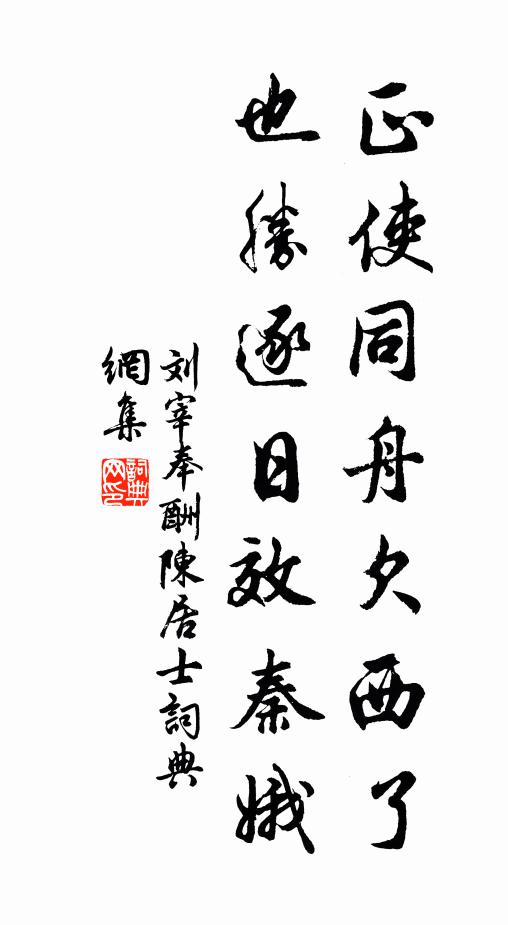 正使同舟欠西了
也勝逐日效秦娥
刘宰奉酬陳居士詞典
網集
詞典
网印